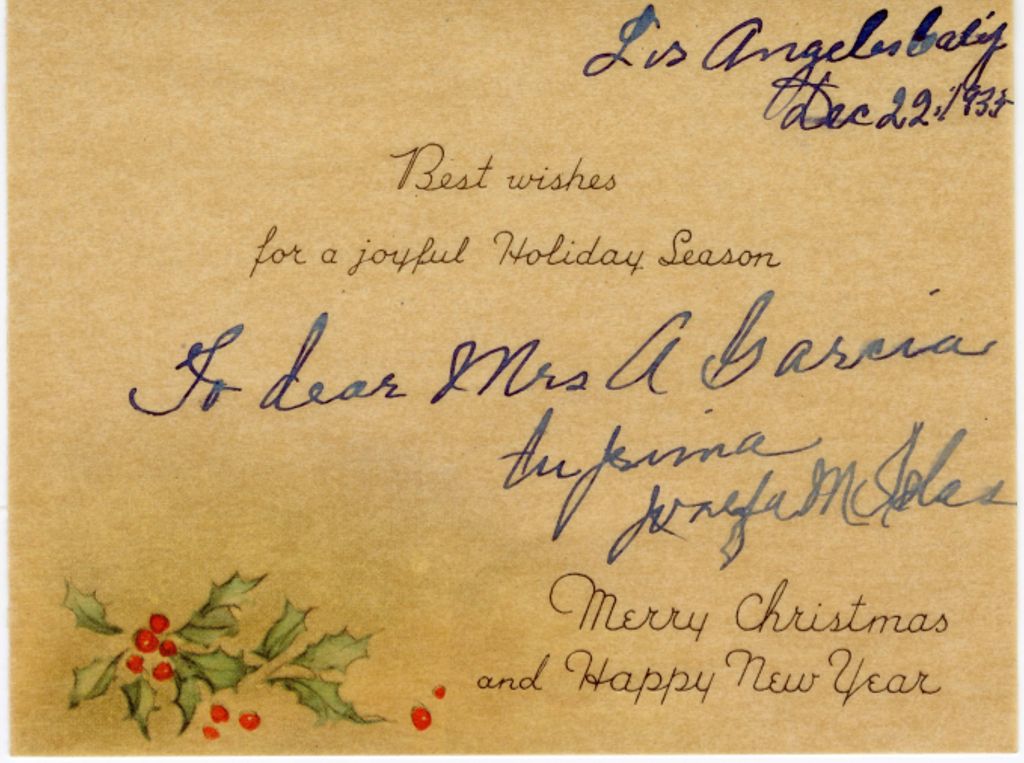 Los Angeles Calif
Dec 22, 1935
Best wishes
for a joyful Holiday Season
To dear Mrs A Garcia
tu prima
Josefa M
Merry Christmas
and Happy New Year